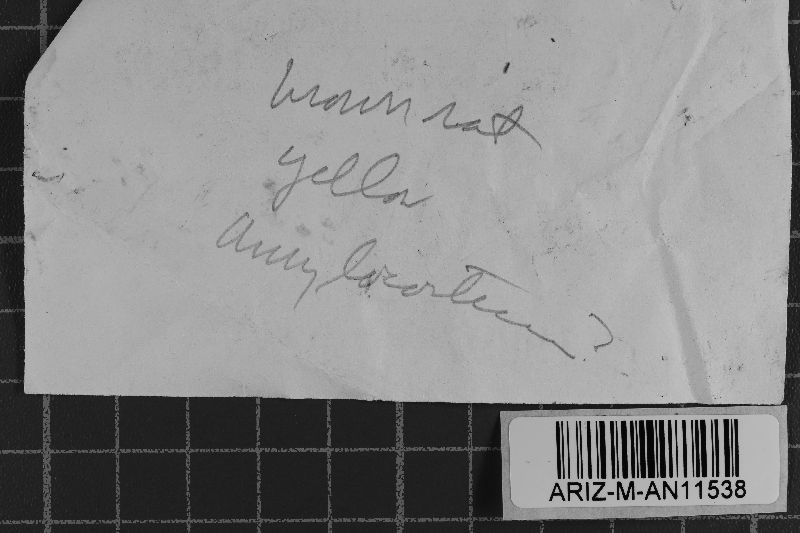 brown rot
yellow
Amylocorticium?
ARIZ-M-AN11538